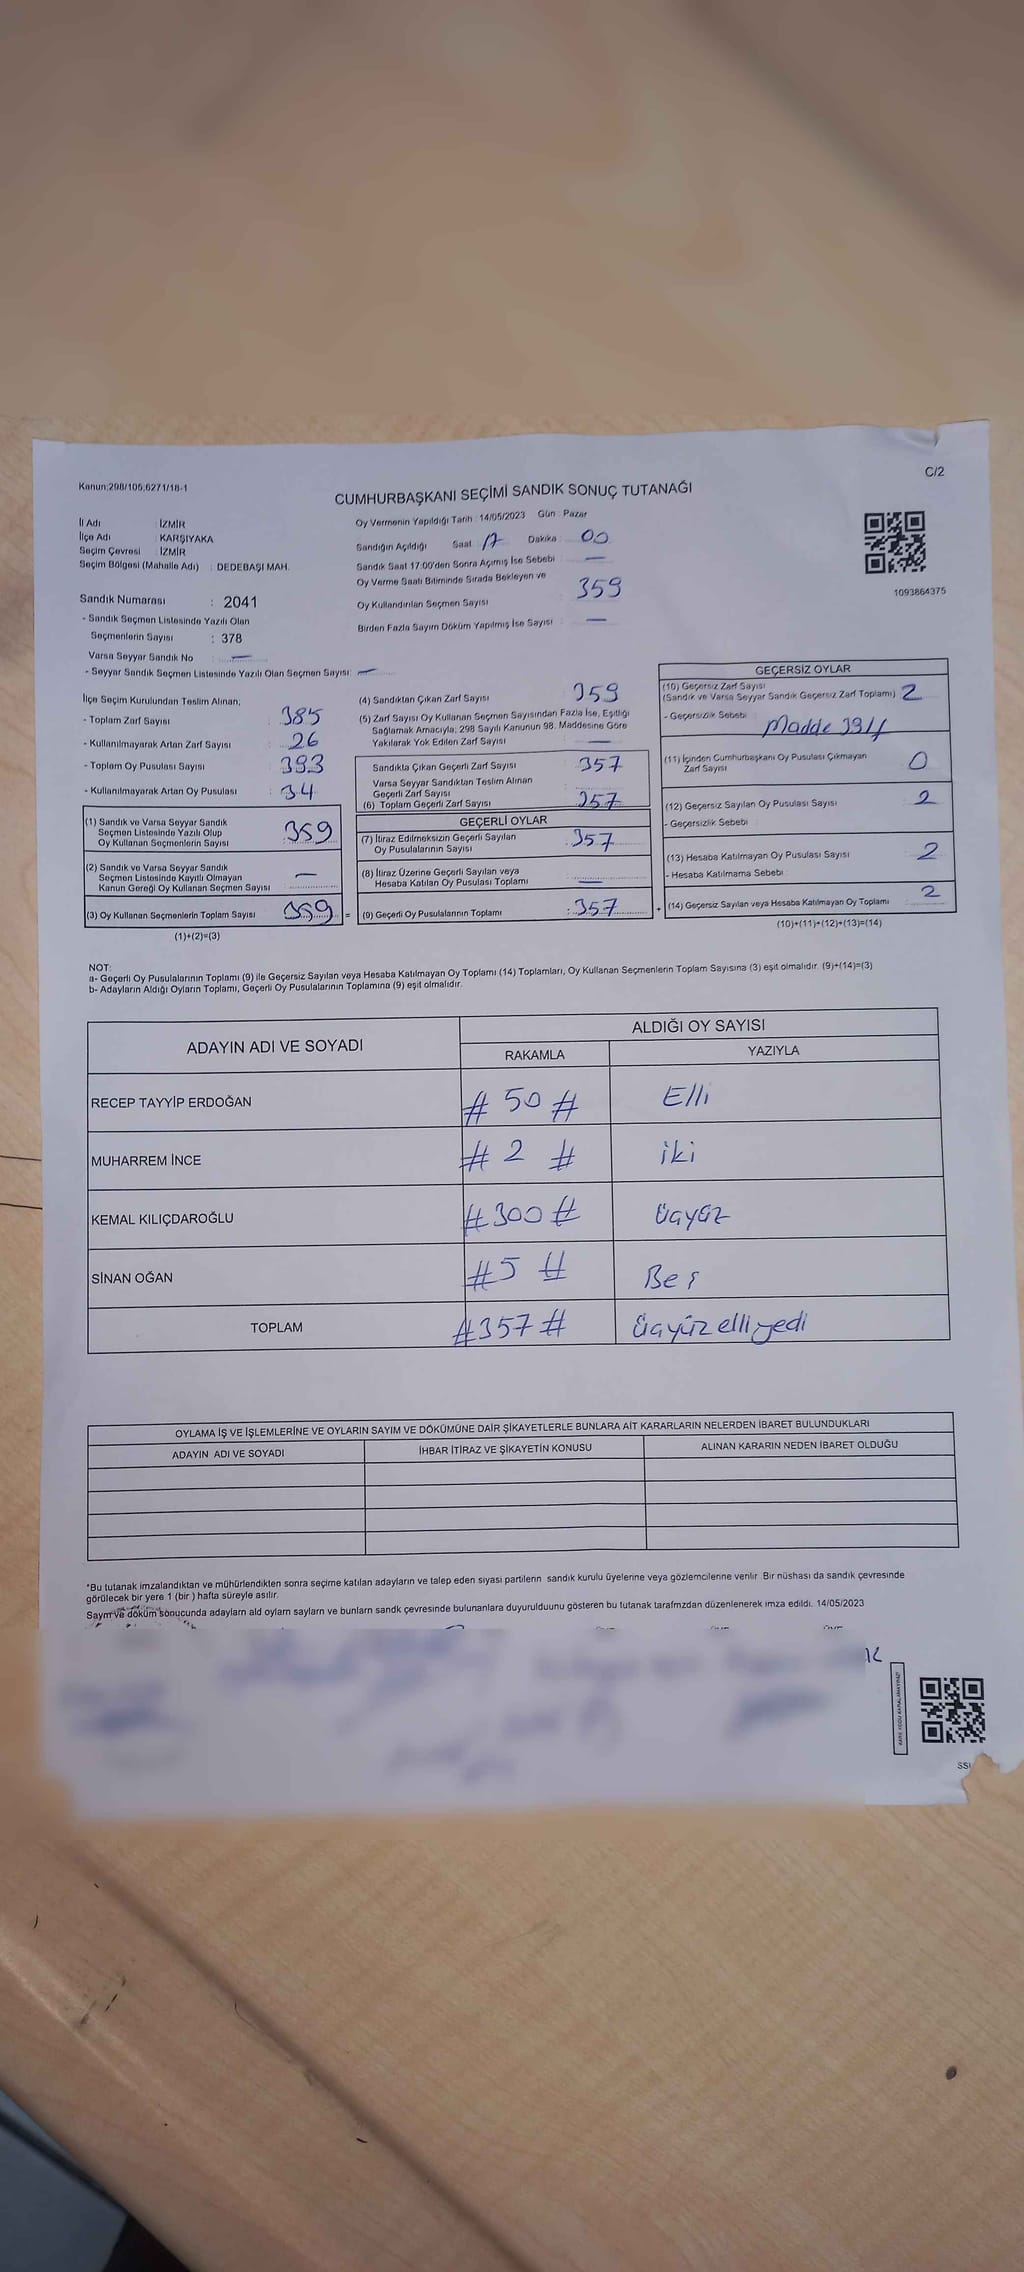 Kanun;298/105;6271/18-1
C/2
CUMHURBAŞKANI SEÇİMİ SANDIK SONUÇ TUTANAĞI
İl Adı : İZMİR
İlçe Adı : KARŞIYAKA
Seçim Çevresi : İZMİR
Seçim Bölgesi (Mahalle Adı) : DEDEBAŞI MAH.
Sandık Numarası : 2041
- Sandık Seçmen Listesinde Yazılı Olan
Seçmenlerin Sayısı : 378
Varsa Seyyar Sandık No : —
- Seyyar Sandık Seçmen Listesinde Yazılı Olan Seçmen Sayısı: —
Oy Vermenin Yapıldığı Tarih : 14/05/2023 Gün : Pazar
Sandığın Açıldığı Saat 17 Dakika : 00
Sandık Saat 17:00'den Sonra Açımış İse Sebebi : —
Oy Verme Saati Bitiminde Sırada Bekleyen ve
Oy Kullandırılan Seçmen Sayısı : 359
Birden Fazla Sayım Döküm Yapılmış İse Sayısı : —
1093864375
İlçe Seçim Kurulundan Teslim Alınan;
- Toplam Zarf Sayısı : 385
- Kullanılmayarak Artan Zarf Sayısı : 26
- Toplam Oy Pusulası Sayısı : 393
- Kullanılmayarak Artan Oy Pusulası : 34
(1) Sandık ve Varsa Seyyar Sandık
Seçmen Listesinde Yazılı Olup
Oy Kullanan Seçmenlerin Sayısı : 359
(2) Sandık ve Varsa Seyyar Sandık
Seçmen Listesinde Kayıtlı Olmayan
Kanun Gereği Oy Kullanan Seçmen Sayısı : —
(3) Oy Kullanan Seçmenlerin Toplam Sayısı : 359 =
(1)+(2)=(3)
(4) Sandıktan Çıkan Zarf Sayısı : 359
(5) Zarf Sayısı Oy Kullanan Seçmen Sayısından Fazla İse, Eşitliği
Sağlamak Amacıyla; 298 Sayılı Kanunun 98. Maddesine Göre
Yakılarak Yok Edilen Zarf Sayısı : —
Sandıkta Çıkan Geçerli Zarf Sayısı : 357
Varsa Seyyar Sandıktan Teslim Alınan
Geçerli Zarf Sayısı
(6) Toplam Geçerli Zarf Sayısı : 357
GEÇERLİ OYLAR
(7) İtiraz Edilmeksizin Geçerli Sayılan
Oy Pusulalarının Sayısı : 357
(8) İtiraz Üzerine Geçerli Sayılan veya
Hesaba Katılan Oy Pusulası Toplamı : —
(9) Geçerli Oy Pusulalarının Toplamı : 357 +
GEÇERSİZ OYLAR
(10) Geçersiz Zarf Sayısı
(Sandık ve Varsa Seyyar Sandık Geçersiz Zarf Toplamı) : 2
- Geçersizlik Sebebi :
(11) İçinden Cumhurbaşkanı Oy Pusulası Çıkmayan
Zarf Sayısı : 0
(12) Geçersiz Sayılan Oy Pusulası Sayısı : 2
- Geçersizlik Sebebi :
(13) Hesaba Katılmayan Oy Pusulası Sayısı : 2
- Hesaba Katılmama Sebebi :
(14) Geçersiz Sayılan veya Hesaba Katılmayan Oy Toplamı : 2
(10)+(11)+(12)+(13)=(14)
NOT:
a- Geçerli Oy Pusulalarının Toplamı (9) ile Geçersiz Sayılan veya Hesaba Katılmayan Oy Toplamı (14) Toplamları, Oy Kullanan Seçmenlerin Toplam Sayısına (3) eşit olmalıdır. (9)+(14)=(3)
b- Adayların Aldığı Oyların Toplamı, Geçerli Oy Pusulalarının Toplamına (9) eşit olmalıdır.
ADAYIN ADI VE SOYADI
ALDIĞI OY SAYISI
RAKAMLA YAZIYLA
RECEP TAYYİP ERDOĞAN # 50 # Elli
MUHARREM İNCE # 2 # iki
KEMAL KILIÇDAROĞLU # 300 # üçyüz
SİNAN OĞAN # 5 # Beş
TOPLAM # 357 # üçyüzelliyedi
OYLAMA İŞ VE İŞLEMLERİNE VE OYLARIN SAYIM VE DÖKÜMÜNE DAİR ŞİKAYETLERLE BUNLARA AİT KARARLARIN NELERDEN İBARET BULUNDUKLARI
ADAYIN ADI VE SOYADI İHBAR İTİRAZ VE ŞİKAYETİN KONUSU ALINAN KARARIN NEDEN İBARET OLDUĞU
*Bu tutanak imzalandıktan ve mühürlendikten sonra seçime katılan adayların ve talep eden siyasi partilerin sandık kurulu üyelerine veya gözlemcilerine verilir. Bir nüshası da sandık çevresinde
görülecek bir yere 1 (bir ) hafta süreyle asılır.
Sayım ve döküm sonucunda adayların ald oyların sayların ve bunların sandk çevresinde bulunanlara duyurulduunu gösteren bu tutanak tarafmzdan düzenlenerek imza edildi. 14/05/2023